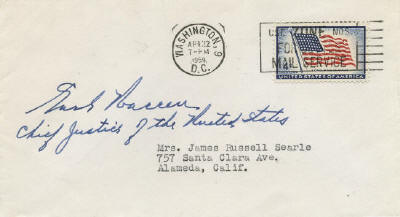 WASHINGTON, 9
APR 22
7-PM
1959
D.C.
USE ZONE NOS.
FOR
MAIL SERVICE
UNITED STATES OF AMERICA
Earl Warren
Chief Justice of the United States
Mrs. James Russell Searle
757 Santa Clara Ave.
Alameda, Calif.